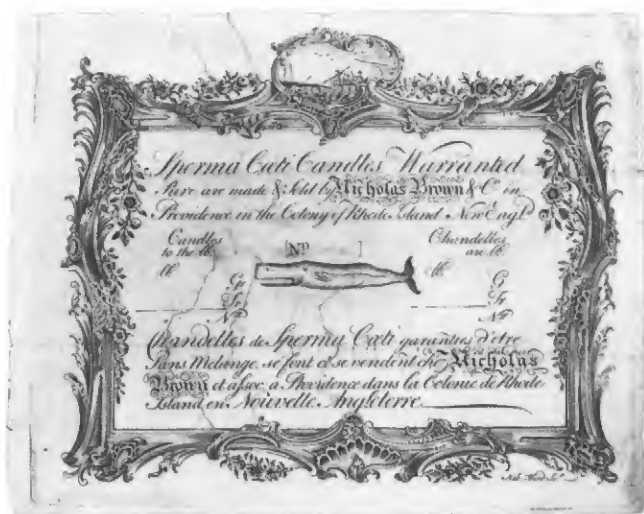 Sperma Cœti Candles Warranted
Pure are made & Sold by Nicholas Brown & Cº in
Providence in the Colony of Rhode Island New Englᵈ
Candles
to the lb.
lb.
Gr
Tr
Nt
[Nº ]
Chandelles
au lb.
lb.
G
Tr
Nt
Chandelles de Sperma Cœti garanties d'etre
Sans Melange, se font et se vendent chez Nicholas
Brown et assoc. a Providence dans la Colonie de Rhode
Island en Nouvelle Angleterre